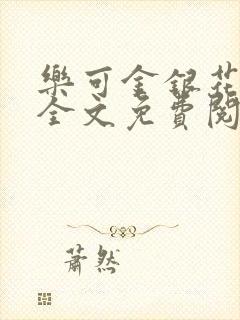 樂可金銀花
全文免費閱
蕭然